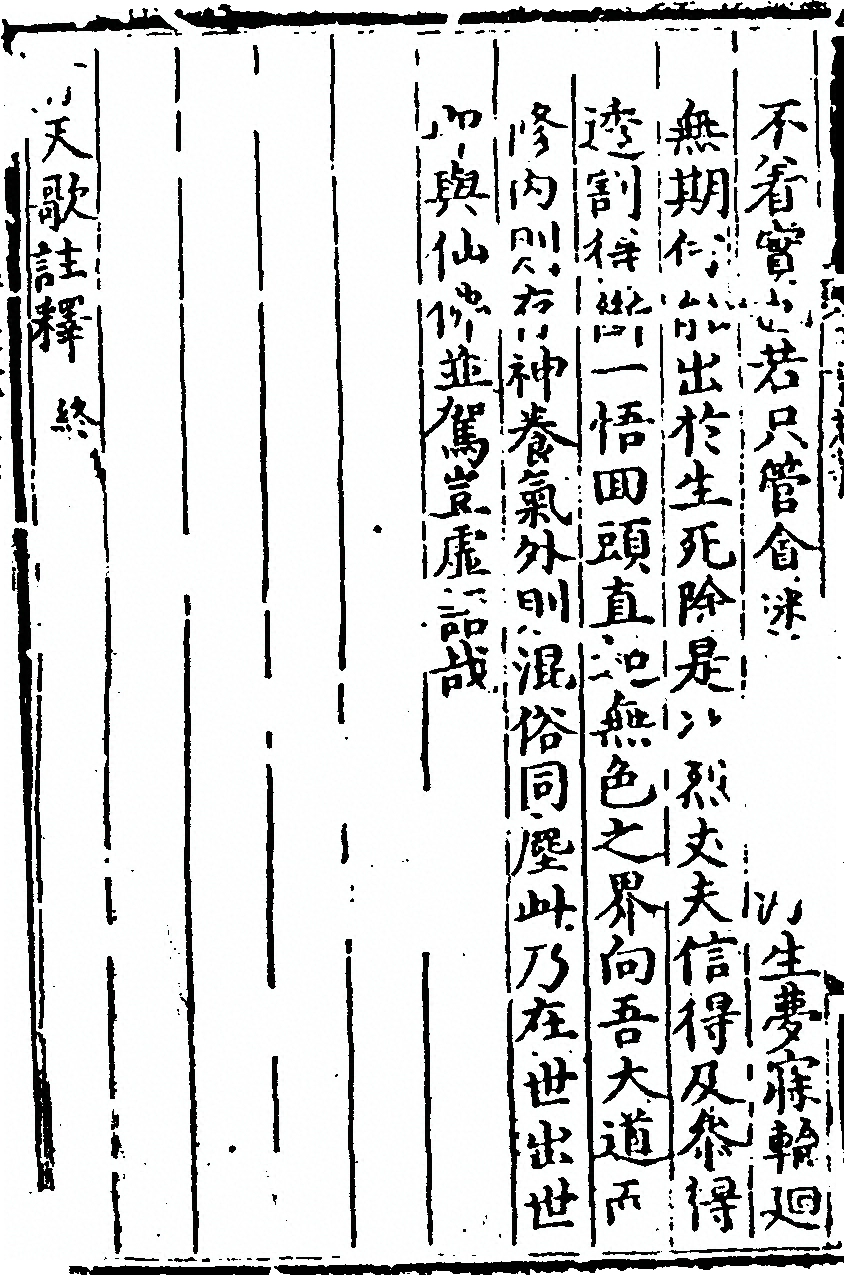 不看實若只管貪迷生夢寐輪廻
無期何能出於生死除是烈丈夫信得及叅得
透割得斷一悟回頭直認無色之界向吾大道而
修內則存神養氣外則混俗同塵此乃在世出世
與仙佛並駕豈虛語哉
天歌註釋 終